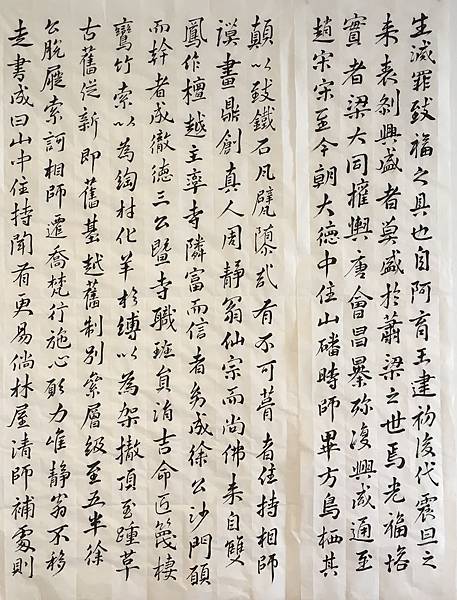 生滅罪致福之具也自阿育王建初後代震旦之
来表剎興盛者莫盛於蕭梁之世焉光福塔
實者梁大同權輿唐會昌纍殄復興咸通至
趙宋宋至今朝大德中住山磻時師畢方鳥栖其
顛以致鐵石凡甓墮哉有不可葺者住持相師
謨畫鼎創真人周靜翁仙宗而尚佛来自雙
鳳作檀越主率寺隣富而信者多成徐公沙門願
而幹者成徹德三公暨寺職班負涓吉命匠篾棲
鸞竹索以為綯村化羊於縛以為架撤頂至踵草
古舊從新即舊基越舊制別縈層級至五半徐
公脫屣索訶相師遷喬梵行施心願力唯靜翁不移
走書成曰山中住持聞有更易倘林屋清師補處則